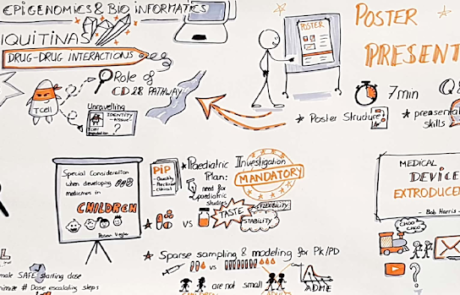 EPIGENOMICS & BIO INFORMATICS
IQUITINAS
DRUG-DRUG INTERACTIONS
Role of
CD 28 PATHWAY
T cell
Unravelling
IDENTITY
?
POSTER
POSTER
PRESENT
7 min
Q&
Poster Structure
presentation
skills
Special Consideration
when developing
medicines in
CHILDREN
PIP
Paediatric Investigation
Plan:
MANDATORY
need for
paediatric
studies
VS
TASTE
STABILITY
Sparse sampling & modeling for PK/PD
VS
are not small
ADME
MEDICAL
DEVICE
EXTRODUCER
- Bob Harris -
CHOO
CHOO
?
SAFE starting dose
# Dose escalating steps